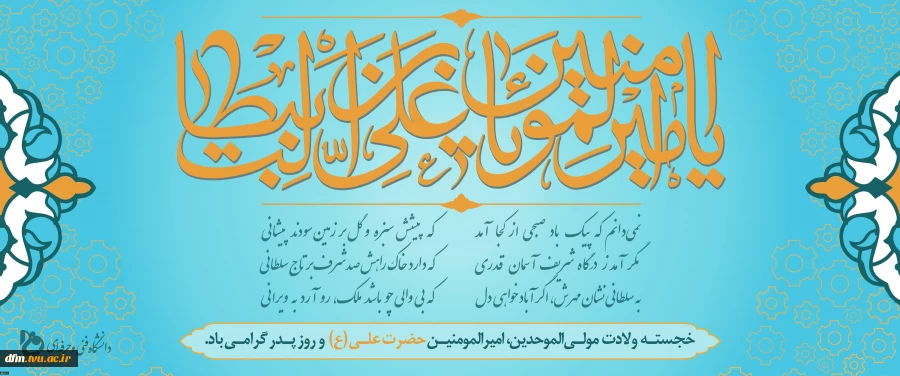 یا امیرالمومنین یا علی بن ابیطالب
نمی‌دانم که پیک باد صبحی از کجا آمد که پیشش سبزه و گل بر زمین سودند پیشانی
مگر آمد ز درگاه شریف آسمان قدری که دارد خاک راهش صد شرف بر تاج سلطانی
به سلطانی نشان مهرش، اگر آباد خواهی دل که بی والی چو باشد ملک، رو آرد به ویرانی
خجسته ولادت مولی‌الموحدین، امیرالمومنین حضرت علی (ع) و روز پدر گرامی باد.
دانشگاه فنی و حرفه‌ای
dfm.tvu.ac.ir